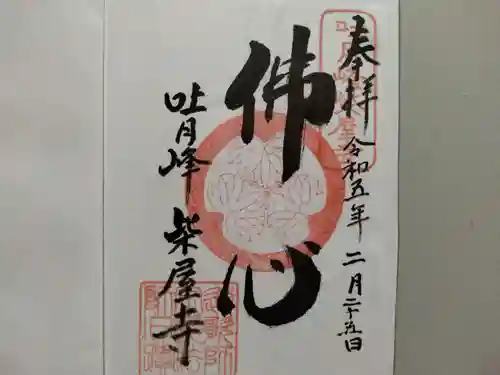 奉拝 令和五年 二月二十五日
佛心
吐月峰 柴屋寺